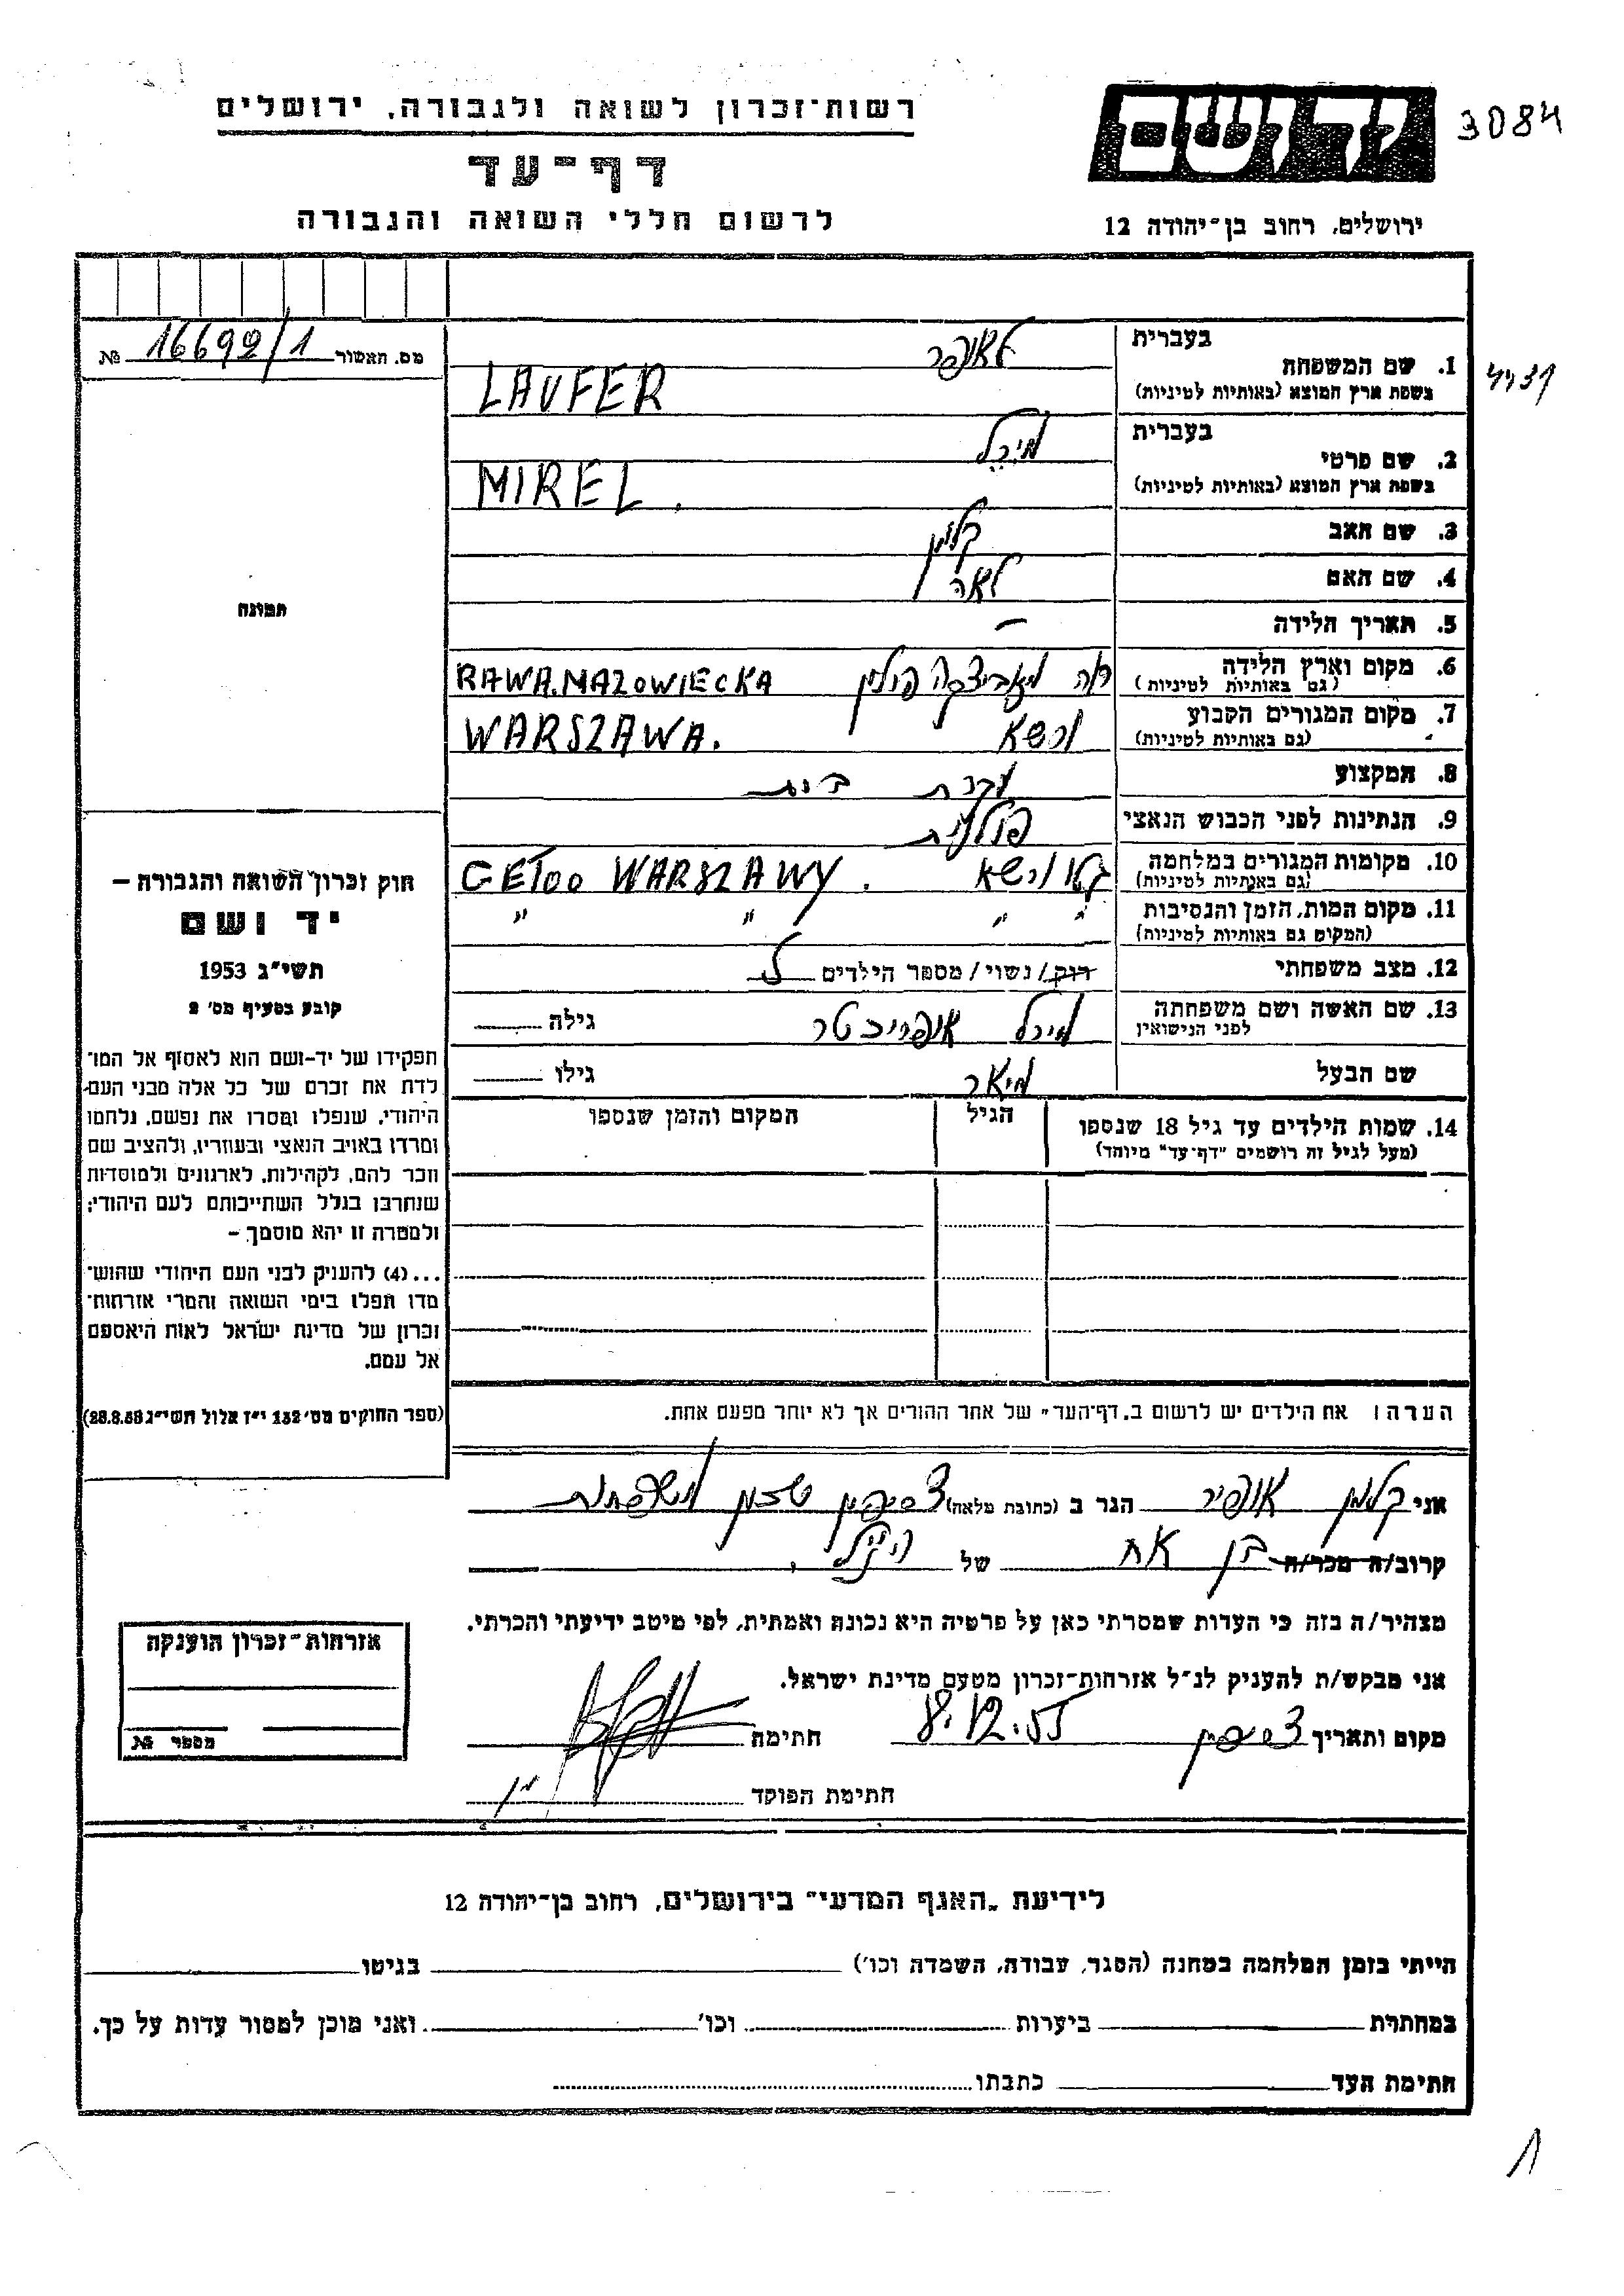 רשות־זכרון לשואה ולגבורה, ירושלים
דף־עד
לרשום חללי השואה והגבורה
יד ושם
3084
ירושלים, רחוב בן־יהודה 12
מס. האשור 16692/1 №
בעברית לאופר
1. שם המשפחה
בשפת ארץ המוצא (באותיות לטיניות) LAUFER
בעברית מירל
2. שם פרטי
בשפת ארץ המוצא (באותיות לטיניות) MIREL.
3. שם האב קלמן
4. שם האם לאה
5. תאריך הלידה –
6. מקום וארץ הלידה רוה מזוביצקה פולין RAWA.MAZOWIECKA
(גם באותיות לטיניות)
7. מקום המגורים הקבוע ורשא WARSZAWA.
(גם באותיות לטיניות)
8. המקצוע עקרת בית
9. הנתינות לפני הכבוש הנאצי פולנית
10. מקומות המגורים במלחמה גטו ורשא. GETOO WARSZAWY
(גם באותיות לטיניות)
11. מקום המות, הזמן והנסיבות " " " "
(המקום גם באותיות לטיניות)
12. מצב משפחתי רוק/נשוי/מספר הילדים
13. שם האשה ושם משפחתה מירל גילה
לפני הנישואין
שם הבעל מיאר גילו
14. שמות הילדים עד גיל 18 שנספו הגיל המקום והזמן שנספו
(מעל לגיל זה רושמים "דף־עד" מיוחד)
הערה: את הילדים יש לרשום ב„דף־העד" של אחד ההורים אך לא יותר מפעם אחת.
תמונה
חוק זכרון השואה והגבורה –
יד ושם
תשי"ג 1953
קובע בסעיף מס' 2
תפקידו של יד-ושם הוא לאסוף אל המו־
לדת את זכרם של כל אלה מבני העם
היהודי, שנפלו ומסרו את נפשם, נלחמו
ומרדו באויב הנאצי ובעוזריו, ולהציב שם
וזכר להם, לקהילות, לארגונים ולמוסדות
שנחרבו בגלל השתייכותם לעם היהודי;
ולמטרה זו יהא מוסמך –
...(4) להעניק לבני העם היהודי שהוש־
מדו ונפלו בימי השואה והמרי אזרחות־
זכרון של מדינת ישראל לאות היאספם
אל עמם.
(ספר החוקים מס' 132 י"ז אלול תשי"ג 28.8.53)
אני קלמן אופיר הגר ב (כתובת מלאה) צריפין שכון משפחות
קרוב/ה מכר/ה בן אח של הנ"ל
מצהיר/ה בזה כי העדות שמסרתי כאן על פרטיה היא נכונה ואמתית, לפי מיטב ידיעתי והכרתי.
אני מבקש/ת להעניק לנ"ל אזרחות־זכרון מטעם מדינת ישראל.
מקום ותאריך צריפין 8.12.55 חתימה
חתימת הפוקד
אזרחות־זכרון הוענקה
מספר №
לידיעת „האגף המדעי" בירושלים, רחוב בן־יהודה 12
הייתי בזמן המלחמה במחנה (הסגר, עבודה, השמדה וכו') בגיטו
במחתרת ביערות וכו' ואני מוכן למסור עדות על כך.
חתימת העד כתבתו
1